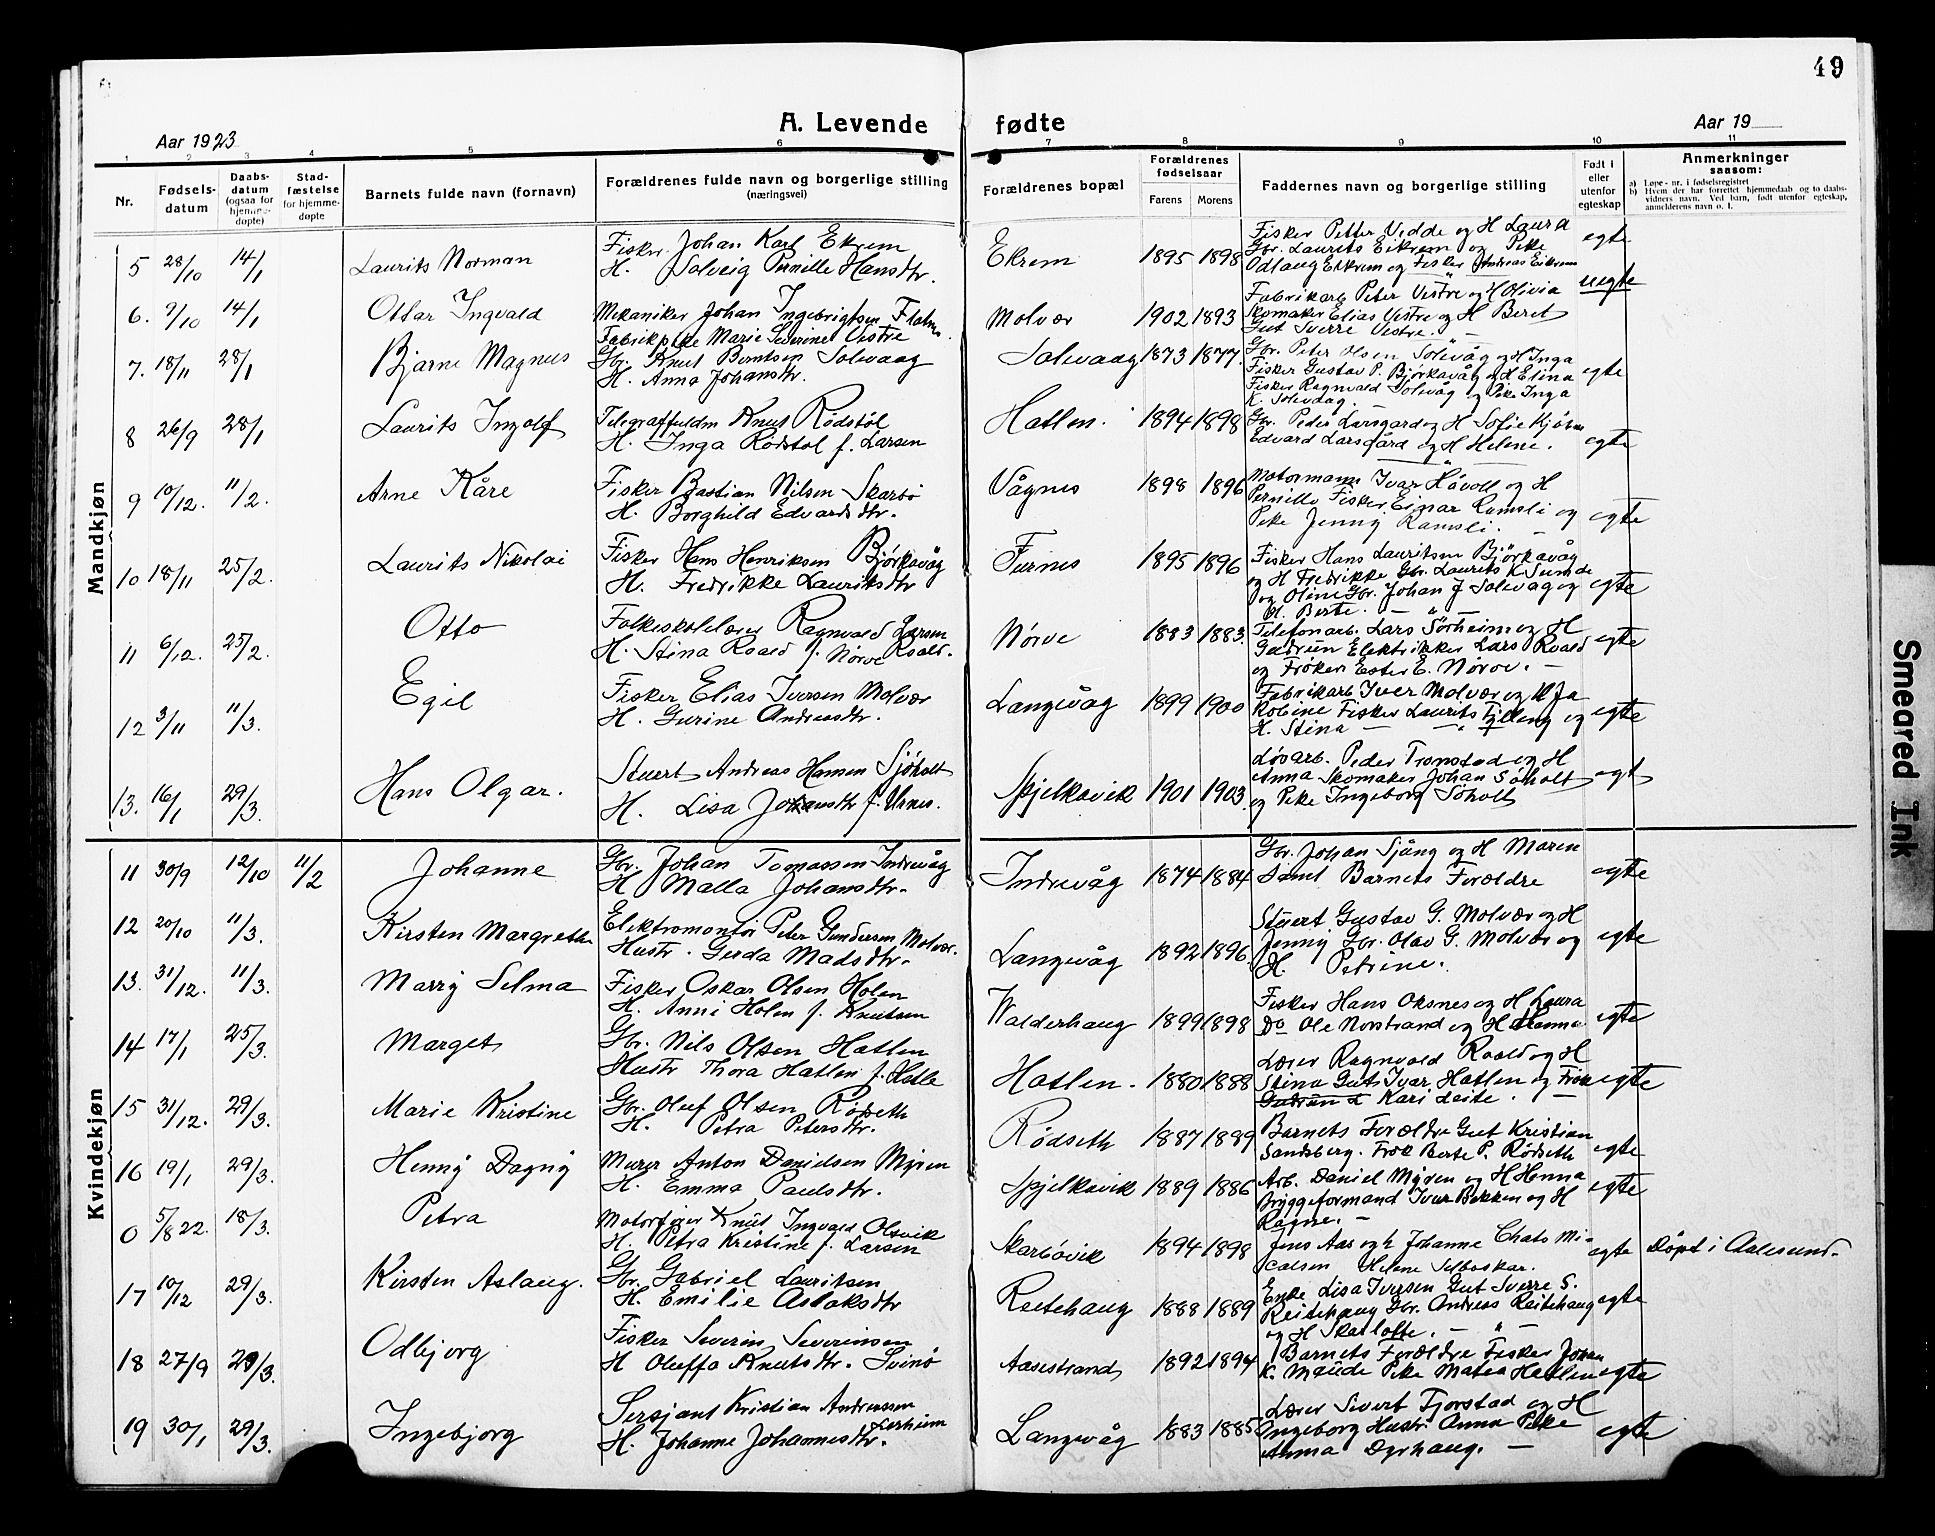 49
A. Levende fødte
Aar 1923
Aar 19
1 2 3 4 5 6 7 8 9 10 11
Nr.
Fødsels-
datum
Daabs-
datum
(ogsaa for
hjemme-
døpte)
Stad-
fæstelse
for hjemme-
døpte
Barnets fulde navn (fornavn)
Forældrenes fulde navn og borgerlige stilling
(næringsvei)
Forældrenes bopæl
Forældrenes
fødselsaar
Farens
Morens
Faddernes navn og borgerlige stilling
Født i
eller
utenfor
egteskap
Anmerkninger
saasom:
a) Løpe-nr. i fødselsregistret
b) Hvem der har forrettet hjemmedaab og to daabs-
vidners navn. Ved barn, født utenfor egteskap,
anmelderens navn o. l.
Mandkjøn
5 28/10 14/1 Laurits Norman
Fisker Johan Karl Ekrem
H. Solveig Pernille Hansdtr.
Ekrem 1895 1898
Fisker Petter Vedde og H Laura
Gbr. Laurits Eikrem og Pike
Odlaug Eikrem og Fisker Andreas Eikrem
egte
6. 9/10 14/1 Ottar Ingvald
Mekaniker Johan Ingebrigtsen
Fabrikpike Marie Severine Vestre
Molvær 1902 1893
Fabrikarb Peter Vestre og H Olivia
Skomaker Elias Vestre og H Beret
Gut Sverre Vestre.
uegte
7. 18/11 28/1 Bjarne Magnus
Gbr. Knut Berntsen Solevaag
H. Anna Johansdtr.
Solevaag 1873 1877.
Gbr. Peter Olsen Solevåg og H Inga
Fisker Gustav P. Bjørkavåg og H Elina
Fisker Ragnvald Solevåg og Pike Inga
K. Solevaag.
egte
8 26/9 28/1 Laurits Ingolf
Knut Rödstöl
H. Inga Rödstöl f. Larsen
Hatlen. 1894 1898
Gbr. Peder Larsgard og H Sofie
Edvard Larsgård og H Helene.
egte
9 10/12. 11/2. Arne Kåre
Fisker Bastian Nilsen Skarbö
H. Borghild Edvardsdtr.
Vågnes 1898 1896
Motormann Ivar Håvoll og H
Pernille Fisker Einar Ramsli og
Pike Jenny Ramsli.
egte
10 18/11 25/2. Laurits Nikolai
Fisker Hans Henriksen Björkavåg
H. Fredrikke Lauritsdtr
Furnes 1895 1896
Fisker Hans Lauritsen Björkavåg
og H Fredrikke Gbr. Laurits K Sunde
og Oline Gbr. Johan J Solevag og
H. Berte. — " —
egte
11 6/12. 25/2. Otto
Folkeskolelærer Ragnvald Larsen
H. Stina Roald f. Nörve Roald.
Nörve 1883 1883.
Telefonarb. Lars Sörheim og H
Gudrun Elektrikker Lars Roald
og Fröken Ester E. Nörve. —
egte
12 3/11 11/3. Egil
Fisker Elias Iversen Molvær
H. Gurine Andreasdtr.
Langevåg 1899 1900
Fabrikarb Iver Molvær og H Ja
kobine Fisker Laurits Fylling og
H. Stina — " —
egte
13. 16/1 29/3. Hans Olgar.
Stuert Andreas Hansen Sjöholt
H. Lisa Johansdtr f. Urnes.
Spjelkavik 1901 1903
Løsarb. Peder Tronstad og H
Anna Skomaker Johan Söholt
og Pike Ingeborg Söholt
egt
Kvindekjøn
11 30/9 12/10 11/2 Johanne
Gbr. Johan Tomassen Indrevåg
H Malla Johansdtr.
Indrevåg 1874 1884
Gbr. Johan Sjång og H Maren
Samt Barnets Forældre
egte
12 20/10 11/3. Kirsten Margrethe
Elektromontör Peter Gundersen Molvær.
Hustr. Gerda Madsdtr.
Langevåg 1892 1896.
Stuert Gustav G. Molvær og H
Jenny Gbr. Olav G. Molvær og
H. Petrine.
egte
13. 31/12. 11/3. Marry Selma
Fisker Oskar Olsen Holen
H. Anni Holen f. Knutsen
Walderhaug 1899 1898
Fisker Hans Oksnes og H Laura
Do Ole Norstrand og H Hanna
egte
14 17/1 25/3. Marget
Gbr. Nils Olsen Hatlen
Hustr Thora Hatlen f. Hatle
Hatlen. 1880 1888
Lærer Ragnvald Roald og H
Stina Gut Ivar Hatlen og Frök
Kari Leite. —
egte
15 31/12. 29/3. Marie Kristine
Gbr. Oluf Olsen Rödseth
H. Petra Petersdtr.
Rödseth 1887 1889
Barnets Forældre Gut Kristian
Sandsberg. Frök Berte P. Rödseth
egte
16 19/1 29/3. Henny Dagny
Murer Anton Danielsen Myren
H. Emma Paulsdtr.
Spjelkavik 1889 1886
Arb. Daniel Myren og H Hanna
Bryggeformand Ivar Bekken og H
Ragne. —
egte
0 5/8 22. 18/3. Petra
Motorfører Knut Ingvald Olsvik
H. Petra Kristine f. Larsen
Skarbövik 1894 1898
Jens Aas og h Johanne Chats Mi-
calsen Helene Selboskar.
egte Döpt i Aalesund.
17 10/12 29/3. Kirsten Aslaug.
Gbr. Gabriel Lauritsen
H. Emilie Aslaksdtr
Reitehaug 1888 1889
Enke Lisa Iversen Gut Sverre S.
Reitehaug Gbr. Andreas Reitehaug
og H Skarlotte. — " —
egte
18 27/9 29/3. Odbjorg
Fisker Severin Severinsen
H Oluffa Knutsdtr. Svinö
Aasestrand 1892 1894
Barnets Forældre Fisker Johan
K. Maude Pike Matea Hatlen
egte
19 30/1 29/3. Ingebjorg
Sersjant Kristian Andreassen
H. Johanne Johannesdtr. Lerheim
Langevåg 1883 1885
Lærer Sivert Fjorstad og H
Ingeborg Hustr. Anna Pike
Anna Dyrhaug. —
egte
Smeared Ink